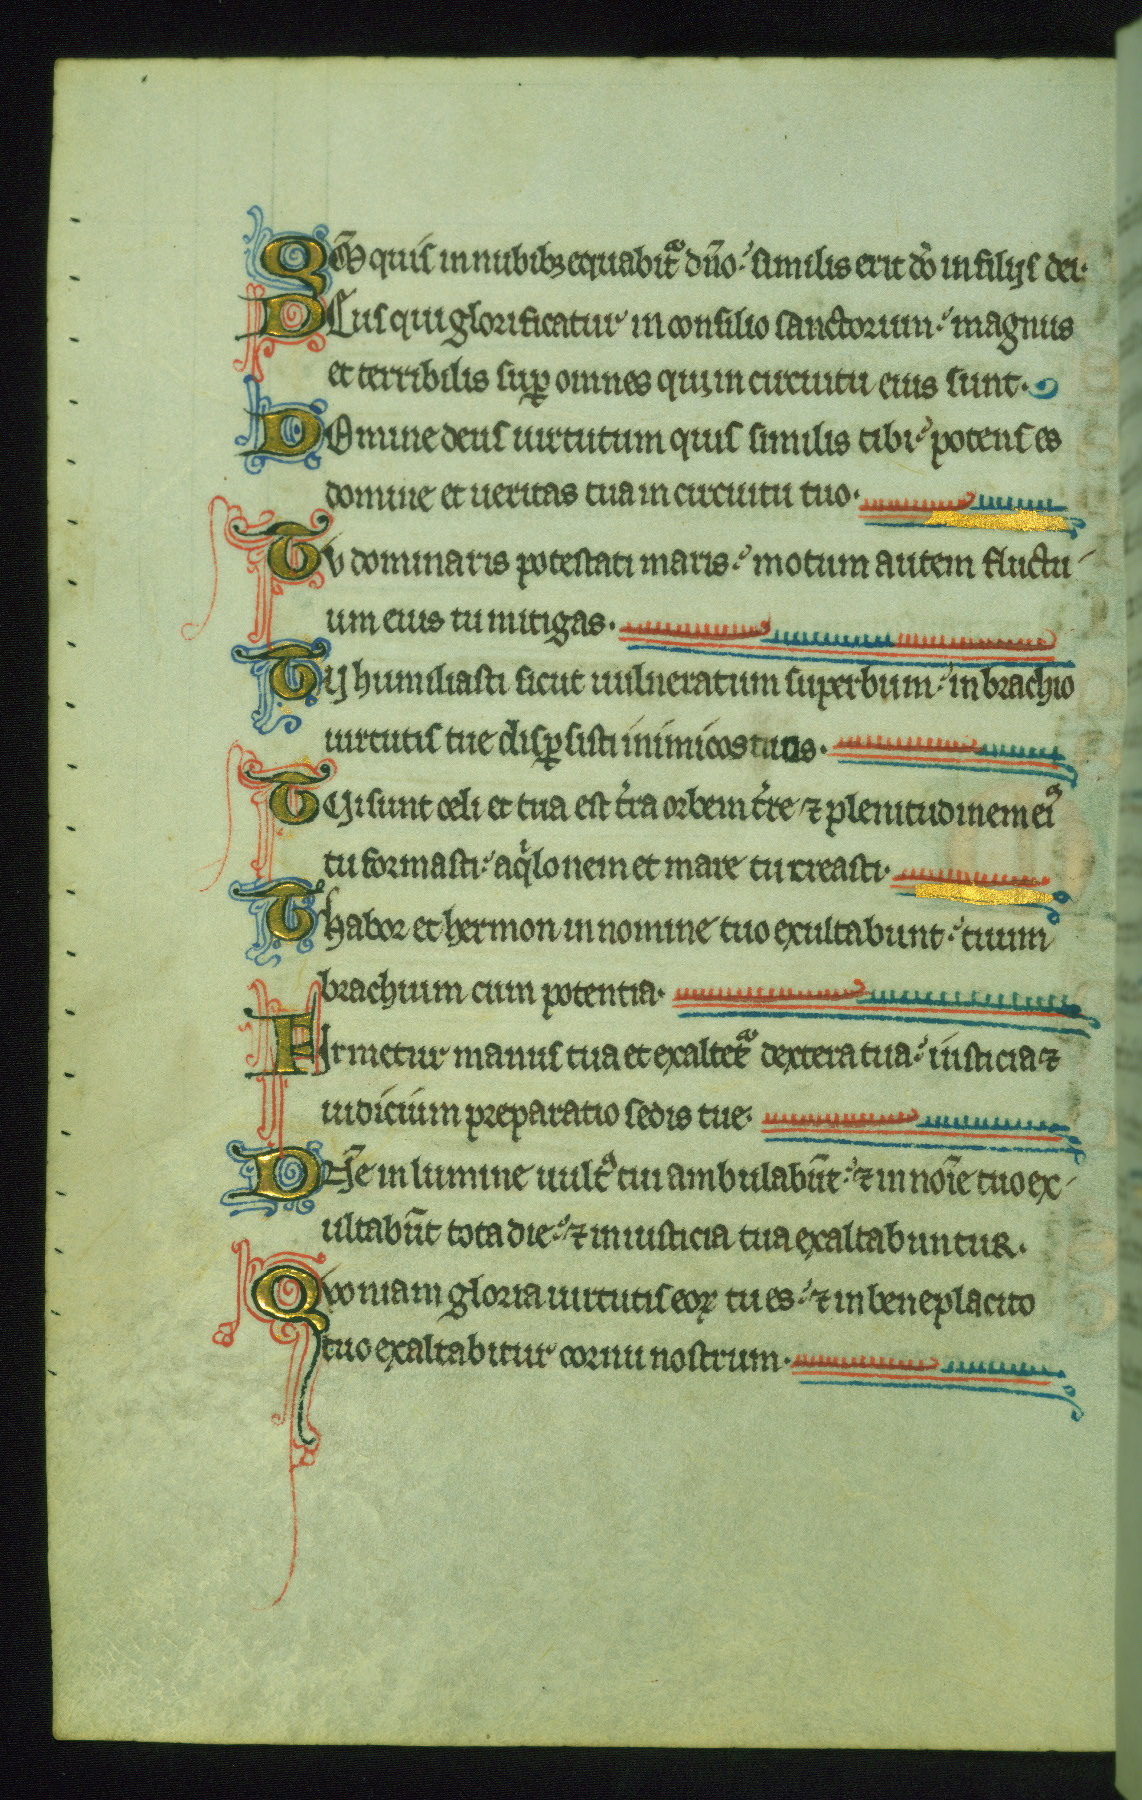 Qm̄ quis in nubibꝫ equabitᷓ dn̄o: similis erit dō in filijs dei.
DEus qui glorificatur in consilio sanctorum: magnus
et terribilis suꝑ omnes qui in circuitu eius sunt.
DOmine deus uirtutum quis similis tibi: potens es
domine et ueritas tua in circuitu tuo.
TV dominaris potestati maris: motum autem fluctu
um eius tu mitigas.
TV humiliasti sicut uulneratum superbum: in brachio
uirtutis tue disꝑsisti inimicos tuos.
TVi sunt celi et tua est t̄ra orbem t̄re ⁊ plenitudinem eiꝰ
tu formasti: aqͥlonem et mare tu creasti.
Thabor et hermon in nomine tuo exultabunt: tuum
brachium cum potentia.
FIrmetur manus tua et exaltetᷓ dextera tua: iusticia ⁊
iudicium preparatio sedis tue.
DN̄e in lumine uultꝰ tui ambulabūt: ⁊ in noīe tuo ex
ultabūt tota die: ⁊ in iusticia tua exaltabuntur.
Quoniam gloria uirtutis eoꝝ tu es: ⁊ in beneplacito
tuo exaltabitur cornu nostrum.